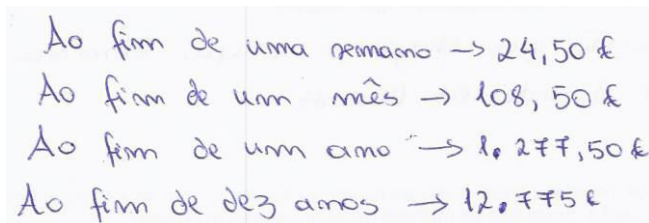 Ao fim de uma semana -> 24,50 €
Ao fim de um mês -> 108,50 €
Ao fim de um ano -> 1.277,50 €
Ao fim de dez anos -> 12.775 €